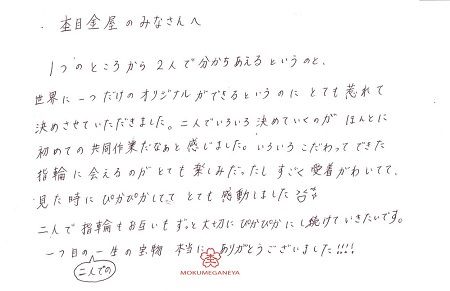 杢目金屋のみなさんへ
1つのところから2人で分かちあえるというのと、
世界に一つだけのオリジナルができるというのに とても惹れて
決めさせていただきました。二人でいろいろ決めていくのが ほんとに
初めての共同作業だなぁと感じました。いろいろこだわってできた
指輪に会えるのがとても楽しみだったし すごく愛着がわいてて、
見た時にぴかぴかしてて とても感動しました
二人で指輪もお互いもずっと大切にぴかぴかにし続けていきたいです。
一つ目の一生の宝物 本当に ありがとうございました!!!!
二人での
MOKUMEGANEYA